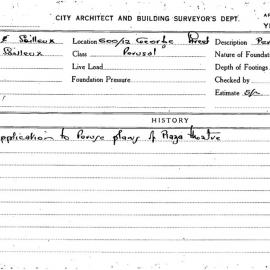 CITY ARCHITECT AND BUILDING SURVEYOR'S DEPT.
Sailleux Location 600/12 George Street Description
Sailleux Class Perusal Nature of Foundat
Live Load Depth of Footings
Foundation Pressure Checked by
Estimate 5/-
HISTORY
pplication to Peruse plans of Plaza theatre